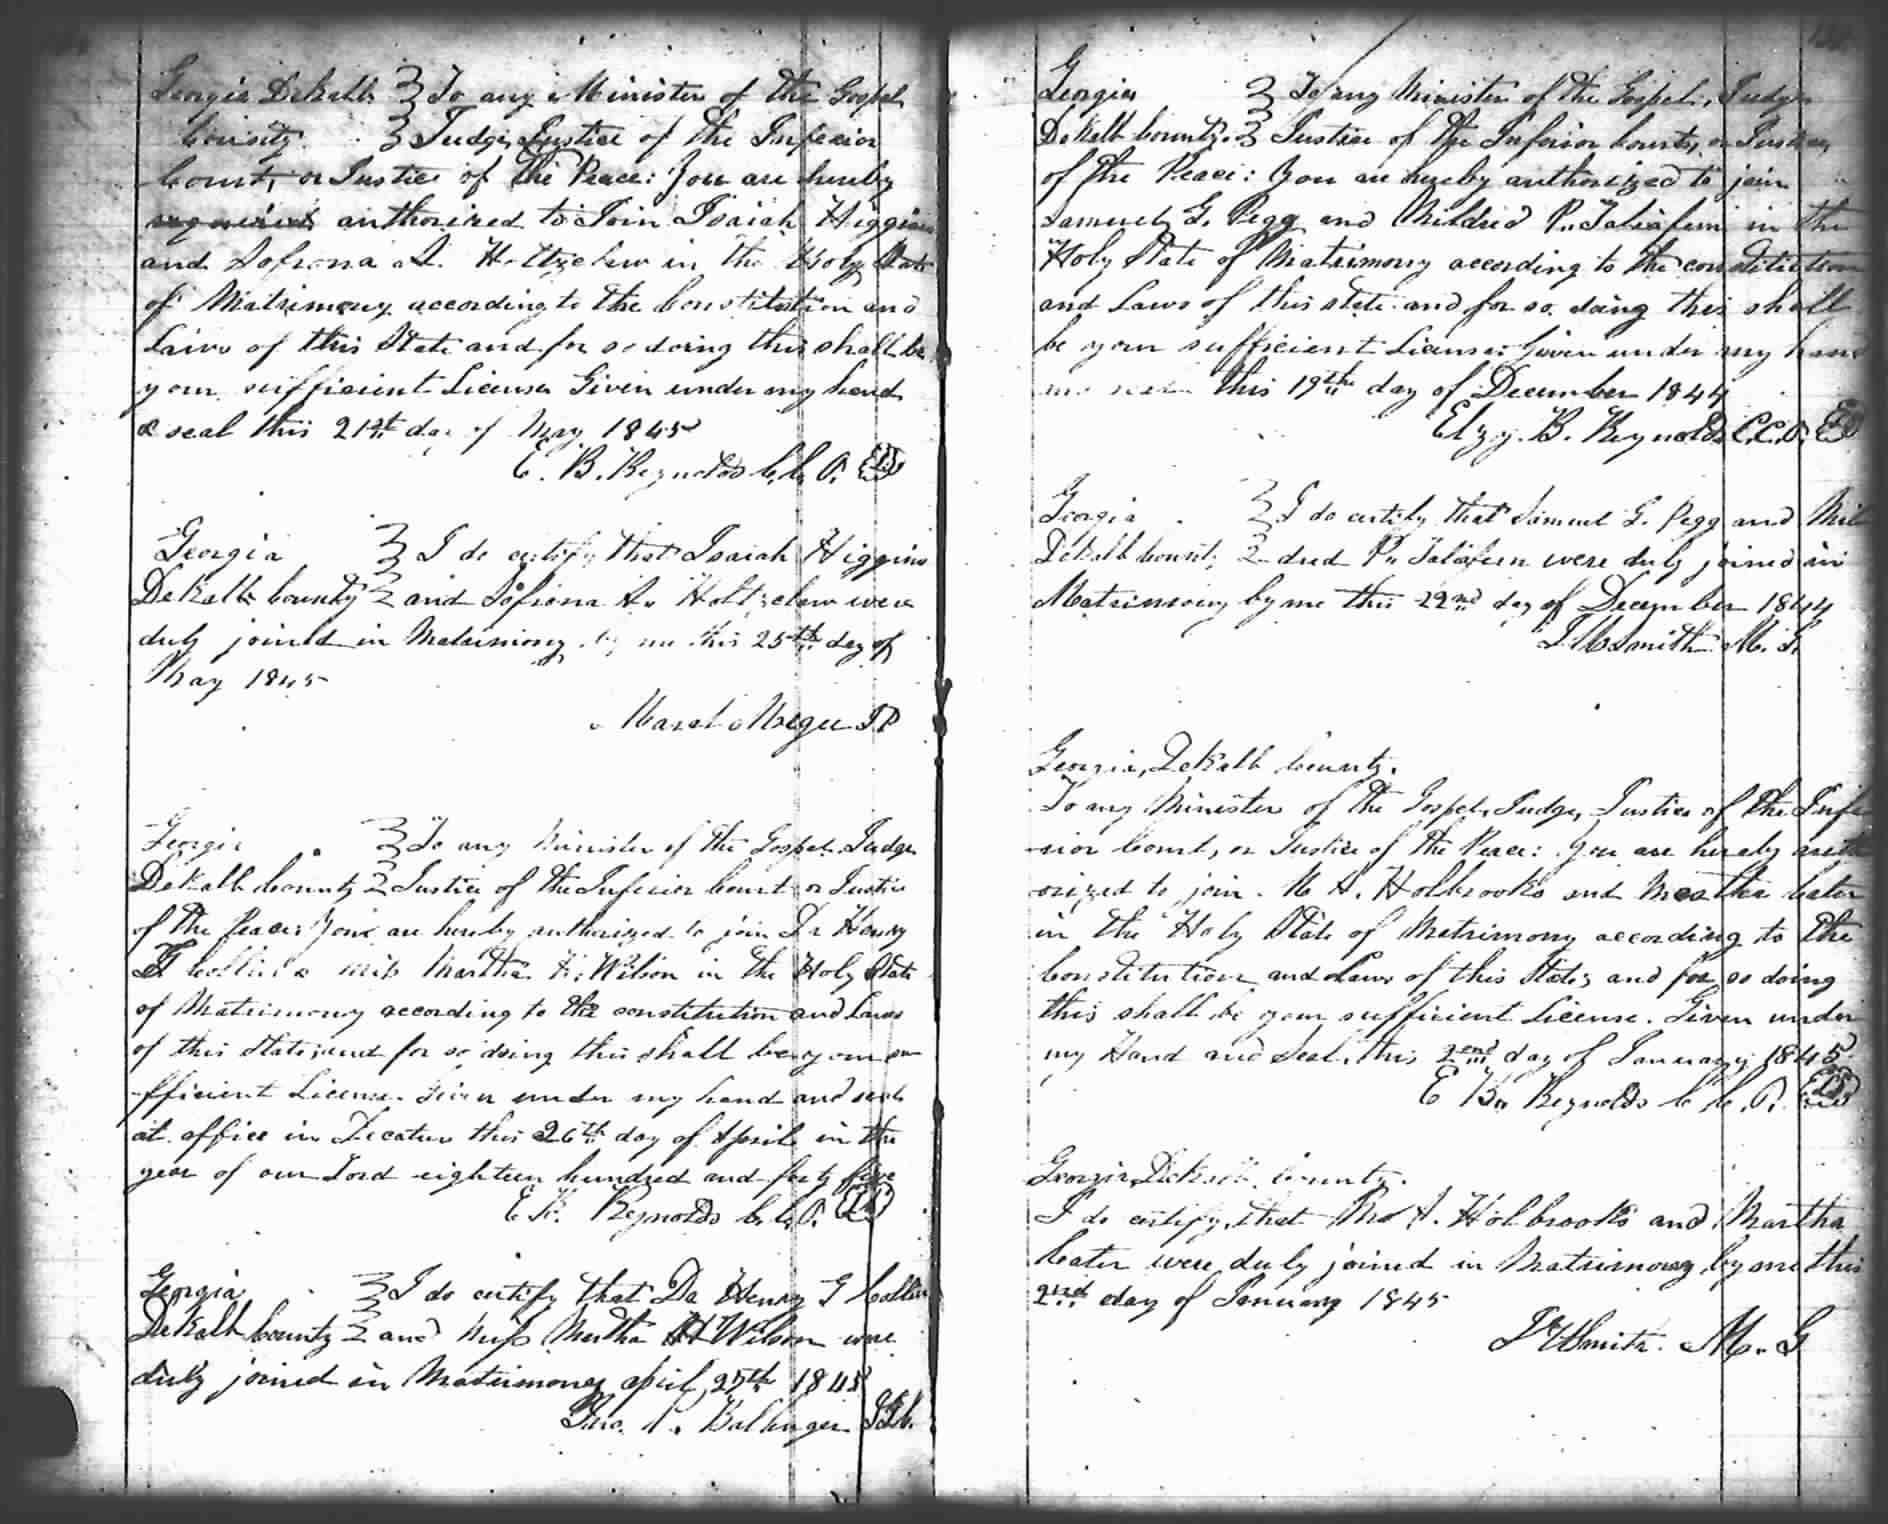 Georgia DeKalb } To any Minister of the Gospel
County } Judge, Justice of the Inferior
Court, or Justice of the Peace: You are hereby
authorized to Join Isaiah Higgins
and Sofrona A. Holtzclaw in the Holy State
of Matrimony according to the Constitution and
Laws of this State and for so doing this shall be
your sufficient License Given under my hand
& seal this 21st day of May 1845
E. B. Reynolds C. C. O. LS
Georgia } I do certify that Isaiah Higgins
DeKalb County } and Sofrona A. Holtzclaw were
duly joined in Matrimony by me this 25th day of
May 1845
Magee J.P
Georgia } To any Minister of the Gospel Judge
DeKalb County } Justice of the Inferior Court or Justice
of the Peace: You are hereby authorized to join Dr Henry
Collins miss Martha Wilson in the Holy State
of Matrimony according to the constitution and Laws
of this State; and for so doing this shall be your su-
-fficient License. Given under my hand and seal
at office in Decatur this 26th day of April in the
year of our Lord eighteen hundred and forty five
E B. Reynolds C. C. O. LS
Georgia } I do certify that Dr Henry G Collins
DeKalb County } and Miss Martha H Wilson were
duly joined in Matrimoney april 25th 1845
Georgia } To any Minister of the Gospel, Judge
DeKalb County. } Justice of the Inferior Court, or Justice
of the Peace: You are hereby authorized to join
Samuel G. Pegg and Mildred P. Taliaferro in the
Holy State of Matrimony according to the constitution
and Laws of this State and for so doing this shall
be your sufficient License: Given under my hand
this 19th day of December 1844
Elzy. B. Reynolds C.C.O. LS
Georgia } I do certify that Samuel G. Pegg and Mil
DeKalb County } -dred P. were duly joined in
Matrimony by me this 22nd day of December 1844
Smith M. G.
Georgia, DeKalb County.
To any Minister of the Gospel, Judge, Justice of the Infe
-rior Court, or Justice of the Peace: You are hereby auth
-orized to join. M A. Holbrooks and Martha Cater
in the Holy State of Matrimony according to the
Constitution and Laws of this State; and for so doing
this shall be your sufficient License. Given under
my Hand and Seal, this 2end day of January 1845
E B. Reynolds C. C. O. LS
Georgia, DeKalb County.
I do certify, that A. Holbrooks and Martha
Cater were duly joined in Matrimony by me this
2nd day of January 1845
Smith. M. G